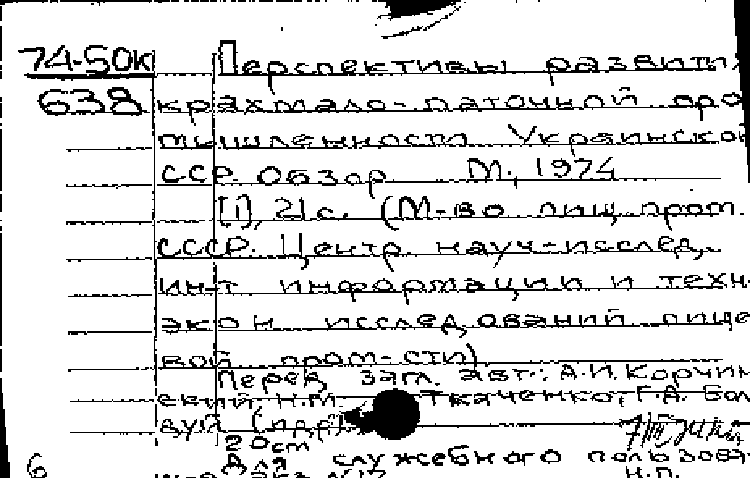 74-50к Перспективы развити
638 крахмало-паточной про
мышленности Украинско
ССР. Обзор. М., 1974
[1], 21 с. (М-во пищ. пром.
СССР. Центр. науч-исслед.
ин-т информации и техн-
экон исследований пище
вой пром-сти)
Перед загл. авт.: А.И. Корчин
ский Н.М. Ткаченко, Г.А. Бол
дуй (и др.)
20 ст
Для служебного пользова
6 Н.П.